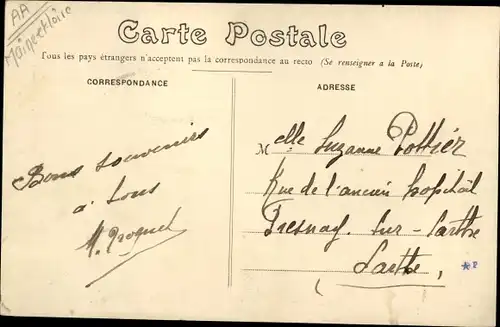 AA
Maine et Loire
Carte Postale
Tous les pays étrangers n'acceptent pas la correspondance au recto (Se renseigner a la Poste)
CORRESPONDANCE
Bons souvenirs
à tous
ADRESSE
Melle Suzanne Pottier
Rue de l'ancien hopital
Fresnay-sur-Sarthe
Sarthe,
*P